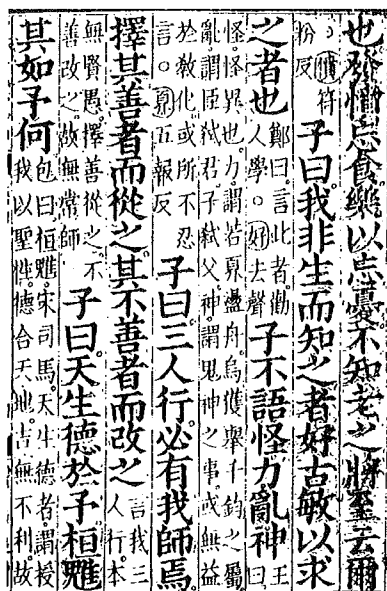 也發憤忘食樂以忘憂不知老之將至云爾
。憤符
粉反
子曰我非生而知之者好古敏以求
之者也
鄭曰言此者勸
人學。好去聲
子不語怪力亂神
王
曰
怪怪異也力謂若奡盪舟烏獲舉千鈞之屬
亂謂臣弑君子弑父神謂鬼神之事或無益
於教化或所不忍
言。奡五報反
子曰三人行必有我師焉
擇其善者而從之其不善者而改之
言我三
人行本
無賢愚擇善從之不
善改之故無常師
子曰天生德於予桓魋
其如予何
包曰桓魋宋司馬天生德者謂授
我以聖性德合天地吉無不利故